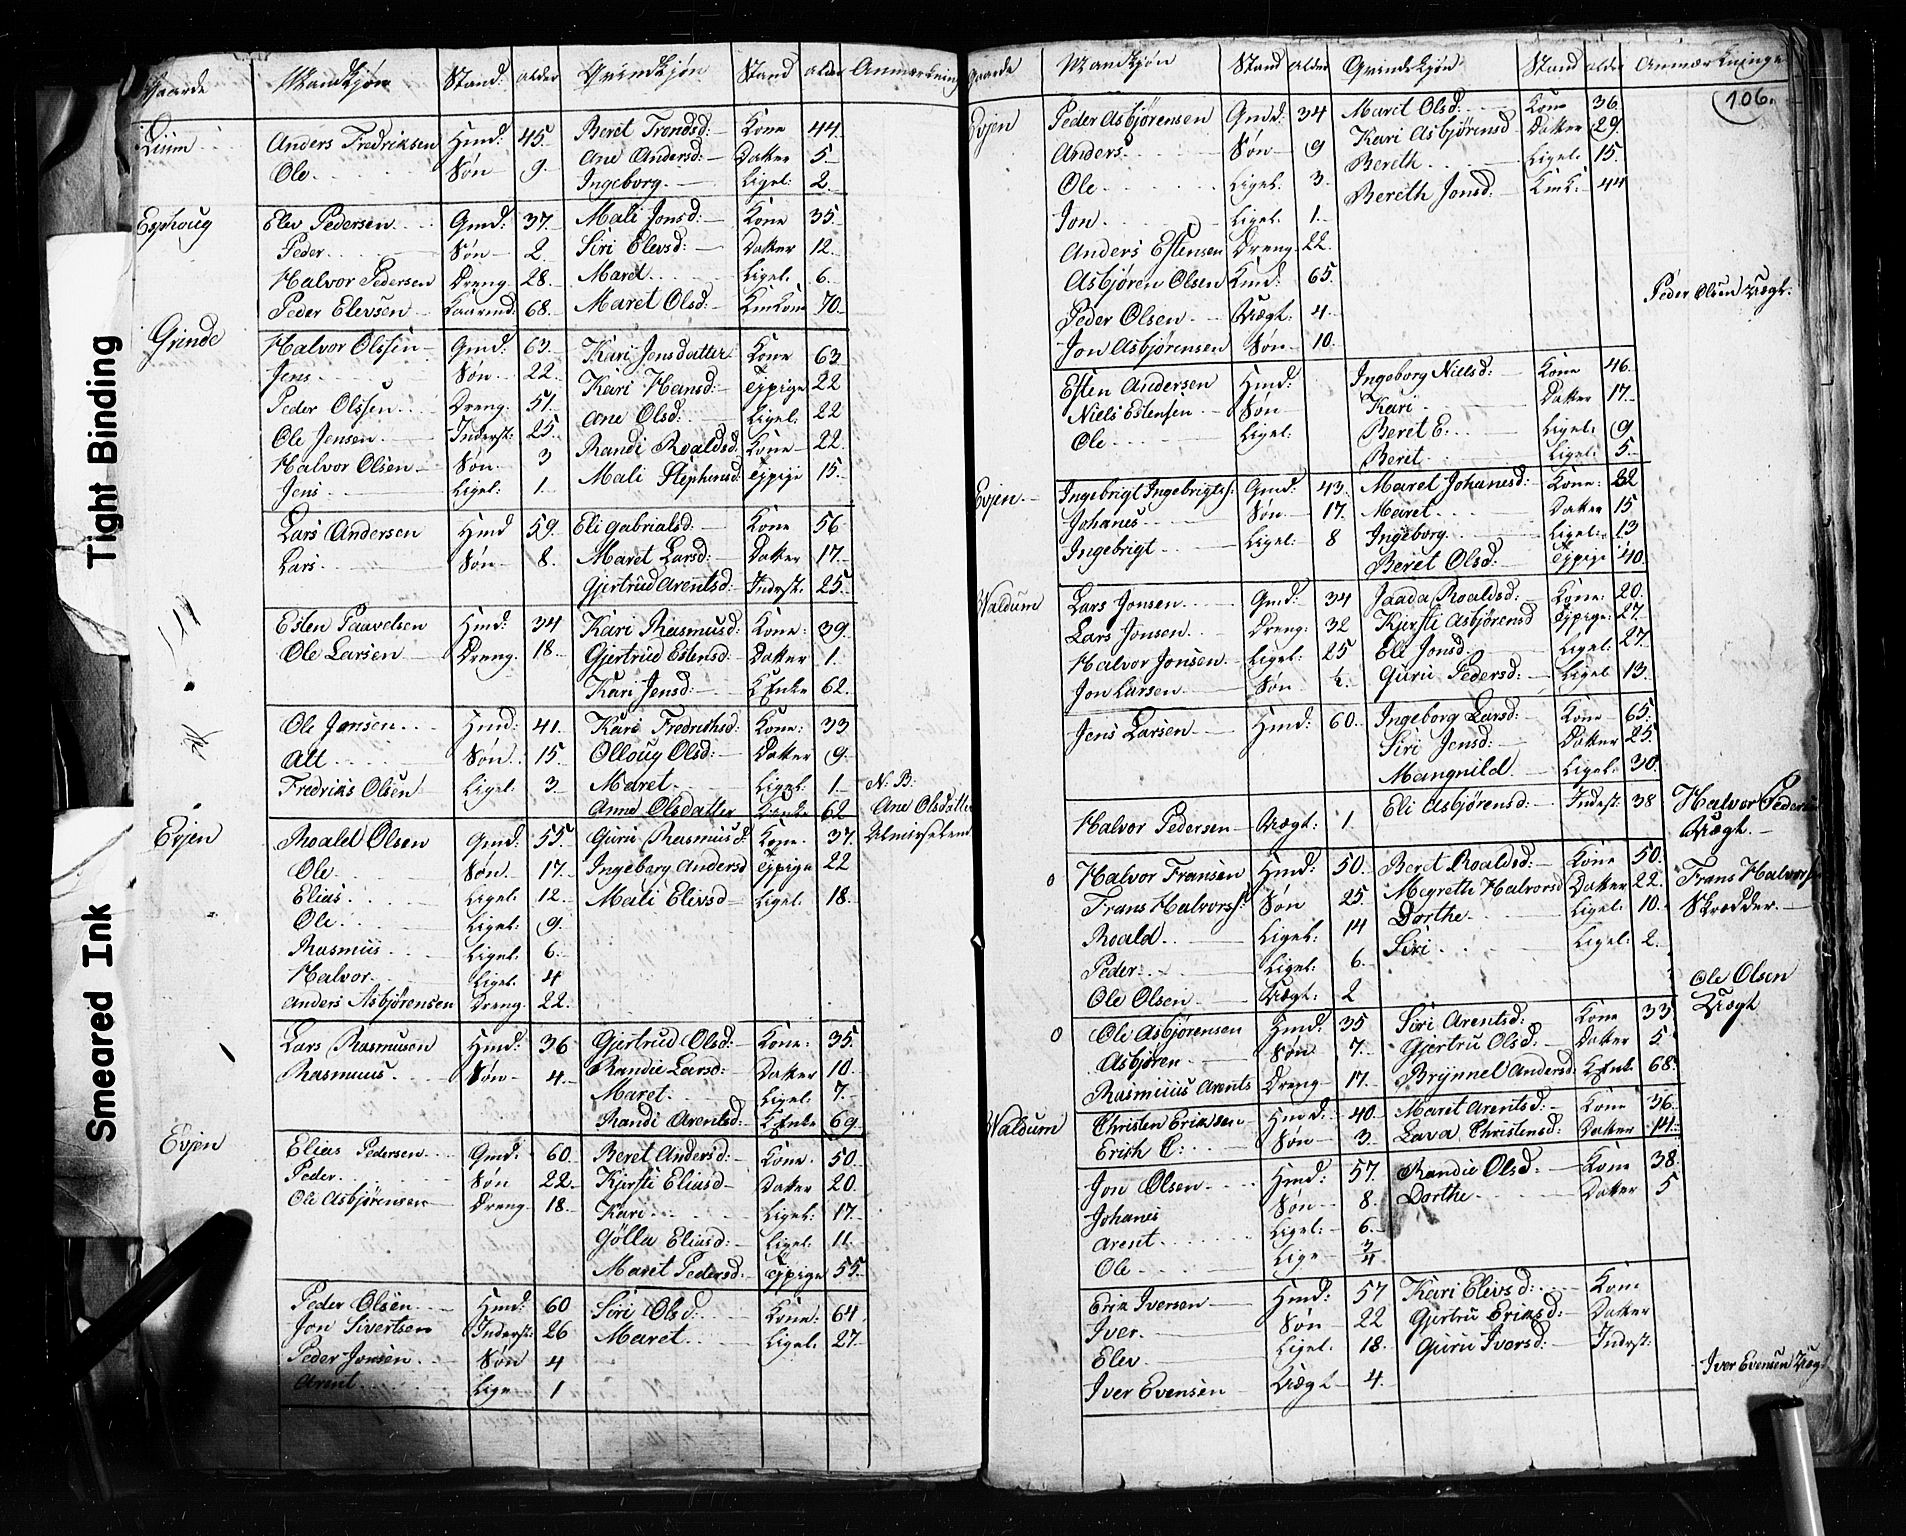 Gaarde Mandkjøn Stand: alder Qvindekjøn Stand alder Anmærkning
Liüm Anders Fredriksen Hmd: 45. Beret Trondsd: Kone 44.
Ole Søn 9. Ane Andersd: Datter 5.
Ingeborg. Ligel: 2.
Esphoug Elev Pedersen Gmd: 37. Mali Jonsd: Kone 35
Peder Søn 2. Siri Elevsd: Datter 12.
Halvor Pedersen Dreng 28. Maret Ligel. 6.
Peder Elevsen Kaarmd: 68. Maret Olsd: KmKone 70.
Grinde Halvor Olssen Gmd: 63. Kari Jensdatter Kone 63.
Jens Søn 22. Kari Hansd: Tjpige 22
Peder Olssen Dreng. 51. Ane Olsd: Ligel: 22
Ole Jensen Inderst: 25. Randi Roaldsd: Kone 22.
Halvor Olsen Søn 3 Mali Stephensd: Tjpige 15.
Jens Ligel: 1.
Lars Andersen Hmd 59. Eli Gabrialsd. Kone 56
Lars Søn 8. Maret Larsd: Datter 17.
Gjertrud Arentsd: Indrst: 25.
Esten Paavelsen Hmd: 34 Kari Rasmusd: Kone: 39.
Ole Larsen Dreng. 18. Gjertrud Estensd: Datter 1.
Kari Jensd: Enke 62.
Ole Jonsen Hmd: 41. Kari Fredrichsd: Kone: 33
Alt Søn 15 Olloug Olsd: Datter 9.
Fredriks Olsen Ligel: 3. Maret Ligel 1. N.B.
Anne Olsdatter 62 Ane Olsdatter
Evjen Roald Olsen Gmd: 55. Guru Rasmusd: Kone 37. Almisselem
Ole Søn 17. Ingeborg Andersd Tjpige 22
Elias Ligel 12. Mali Elivsd Ligel. 18.
Ole Ligel: 9.
Rasmus Ligel. 6.
Halvor Ligel 4
Anders Asbjørensen Dreng. 22.
Lars Rasmusen Hmd: 36 Gjertrud Olsd: Kone: 35.
Rasmuus Søn 4. Randie Larsd: Datter 10.
Maret Ligel 7.
Randi Arentsd: Enke 69
Evjen Elias Pedersen Gmd: 60 Beret Andersd: Kone 50.
Peder Søn 22. Kjersti Eliasd Datter 20.
Ole Asbjørensen Dreng. 18. Kari Ligel: 17.
Gølla Eliasd: Ligel. 11.
Maret Pedersd: Tjpige 55.
Peder Olsen Hmd: 60 Siri Olsd: Kone: 64.
Jon Sivertsen Inderst: 26 Maret Ligel: 27.
Peder Jonsen Søn 4
Arent Lige 1
Gaarde Mandkjøn Stand alder Qvindekjøn Stand alder Anmærkninge
106.
Evjen Peder Asbjørensen Gmd: 34 Maret Olsd: Kone 36.
Anders Søn 9 Kari Asbjørensd Datter 29.
Ole Ligel. 3. Bereth Ligel. 15.
Jon Ligel 1. Bereth Jonsd: 44
Anders Estensen Dreng 22.
Asbjøren Olsen Kmd: 65.
Peder Olsen Lægt. 4. Peder Olsen Lægt.
Jon Asbjørensen Søn 10.
Esten Andersen Hmd: Ingeborg Nielsd: Kone 46.
Niels Estensen Søn Kari Datter 17.
Ole Ligel: Berit E: Ligel: 9
Beret Ligel: 5.
Evjen. Ingebrigt Ingebrigts: Gmd: 43. Maret Johanesd: Kone:
Johanes Søn 17. Maret Datter 15
Ingebrigt Ligel: 8 Ingeborg. Ligel: 13
Beret Olsd: Tjpige 40.
Waldum Lars Jonsen Gmd: 34 Jaada Roaldsd: Kone: 20.
Lars Jonsen Dreng: 32 Kjersti Asbjørensd Tjpige: 27.
Halvor Jonsen Ligel: 25 Eli Jonsd: Ligel: 27.
Jon Larsen Søn Guru Pedersd: Ligel 13.
Jens Larsen Hmd: 60. Ingeborg Larsd: Kone 65.
Siri Jensd: Datter 25.
Mangnild. Ligel: 30.
Halvor Pedersen Lægt: 1 Eli Asbjørensd: Indest: 38 Halvor Pedersen
Lægt.
o Halvor Fransen Hmd: 50. Beret Roaldsd: Kone 50.
Frans Halvorss Søn 25 Megrethe Halvorsd Datter 22. Frans Halvors
Roald Ligel: 14 Dorthe Ligel. 10. Skrædder.
Peder Ligel: 6. Siri Ligel: 2.
Ole Olsen Lægt: 2 Ole Olsen
Lægt
o Ole Asbjørensen Hmd. 35 Siri Arentsd: Kone 33
Asbjøren Søn 7. Gjertru Olsd: Datter 5
Rasmuus Arents Dreng 17. Brynnel Andersd: Enke 68.
Waldum Christen Eriksen Hmd: 40. Maret Arentsd: Kone 36.
Erich C: Søn 3. Lava Christensd: Datter 14.
Jon Olsen Hmd: 57. Randie Olsd: Kone 38.
Johanes Søn 8. Dorthe Datter 5
Arent Ligel: 6.
Ole Lige 3/4
Erik Iversen Hmd: 57 Kari Elevsd: Kone
Iver Søn 22 Gjertru Eriksd: Datter
Elev Ligel. 18. Guru Iversd: Indrst:
Iver Evensen Lægt 4. Iver Evensen Læg
Tight Binding
Smeared Ink